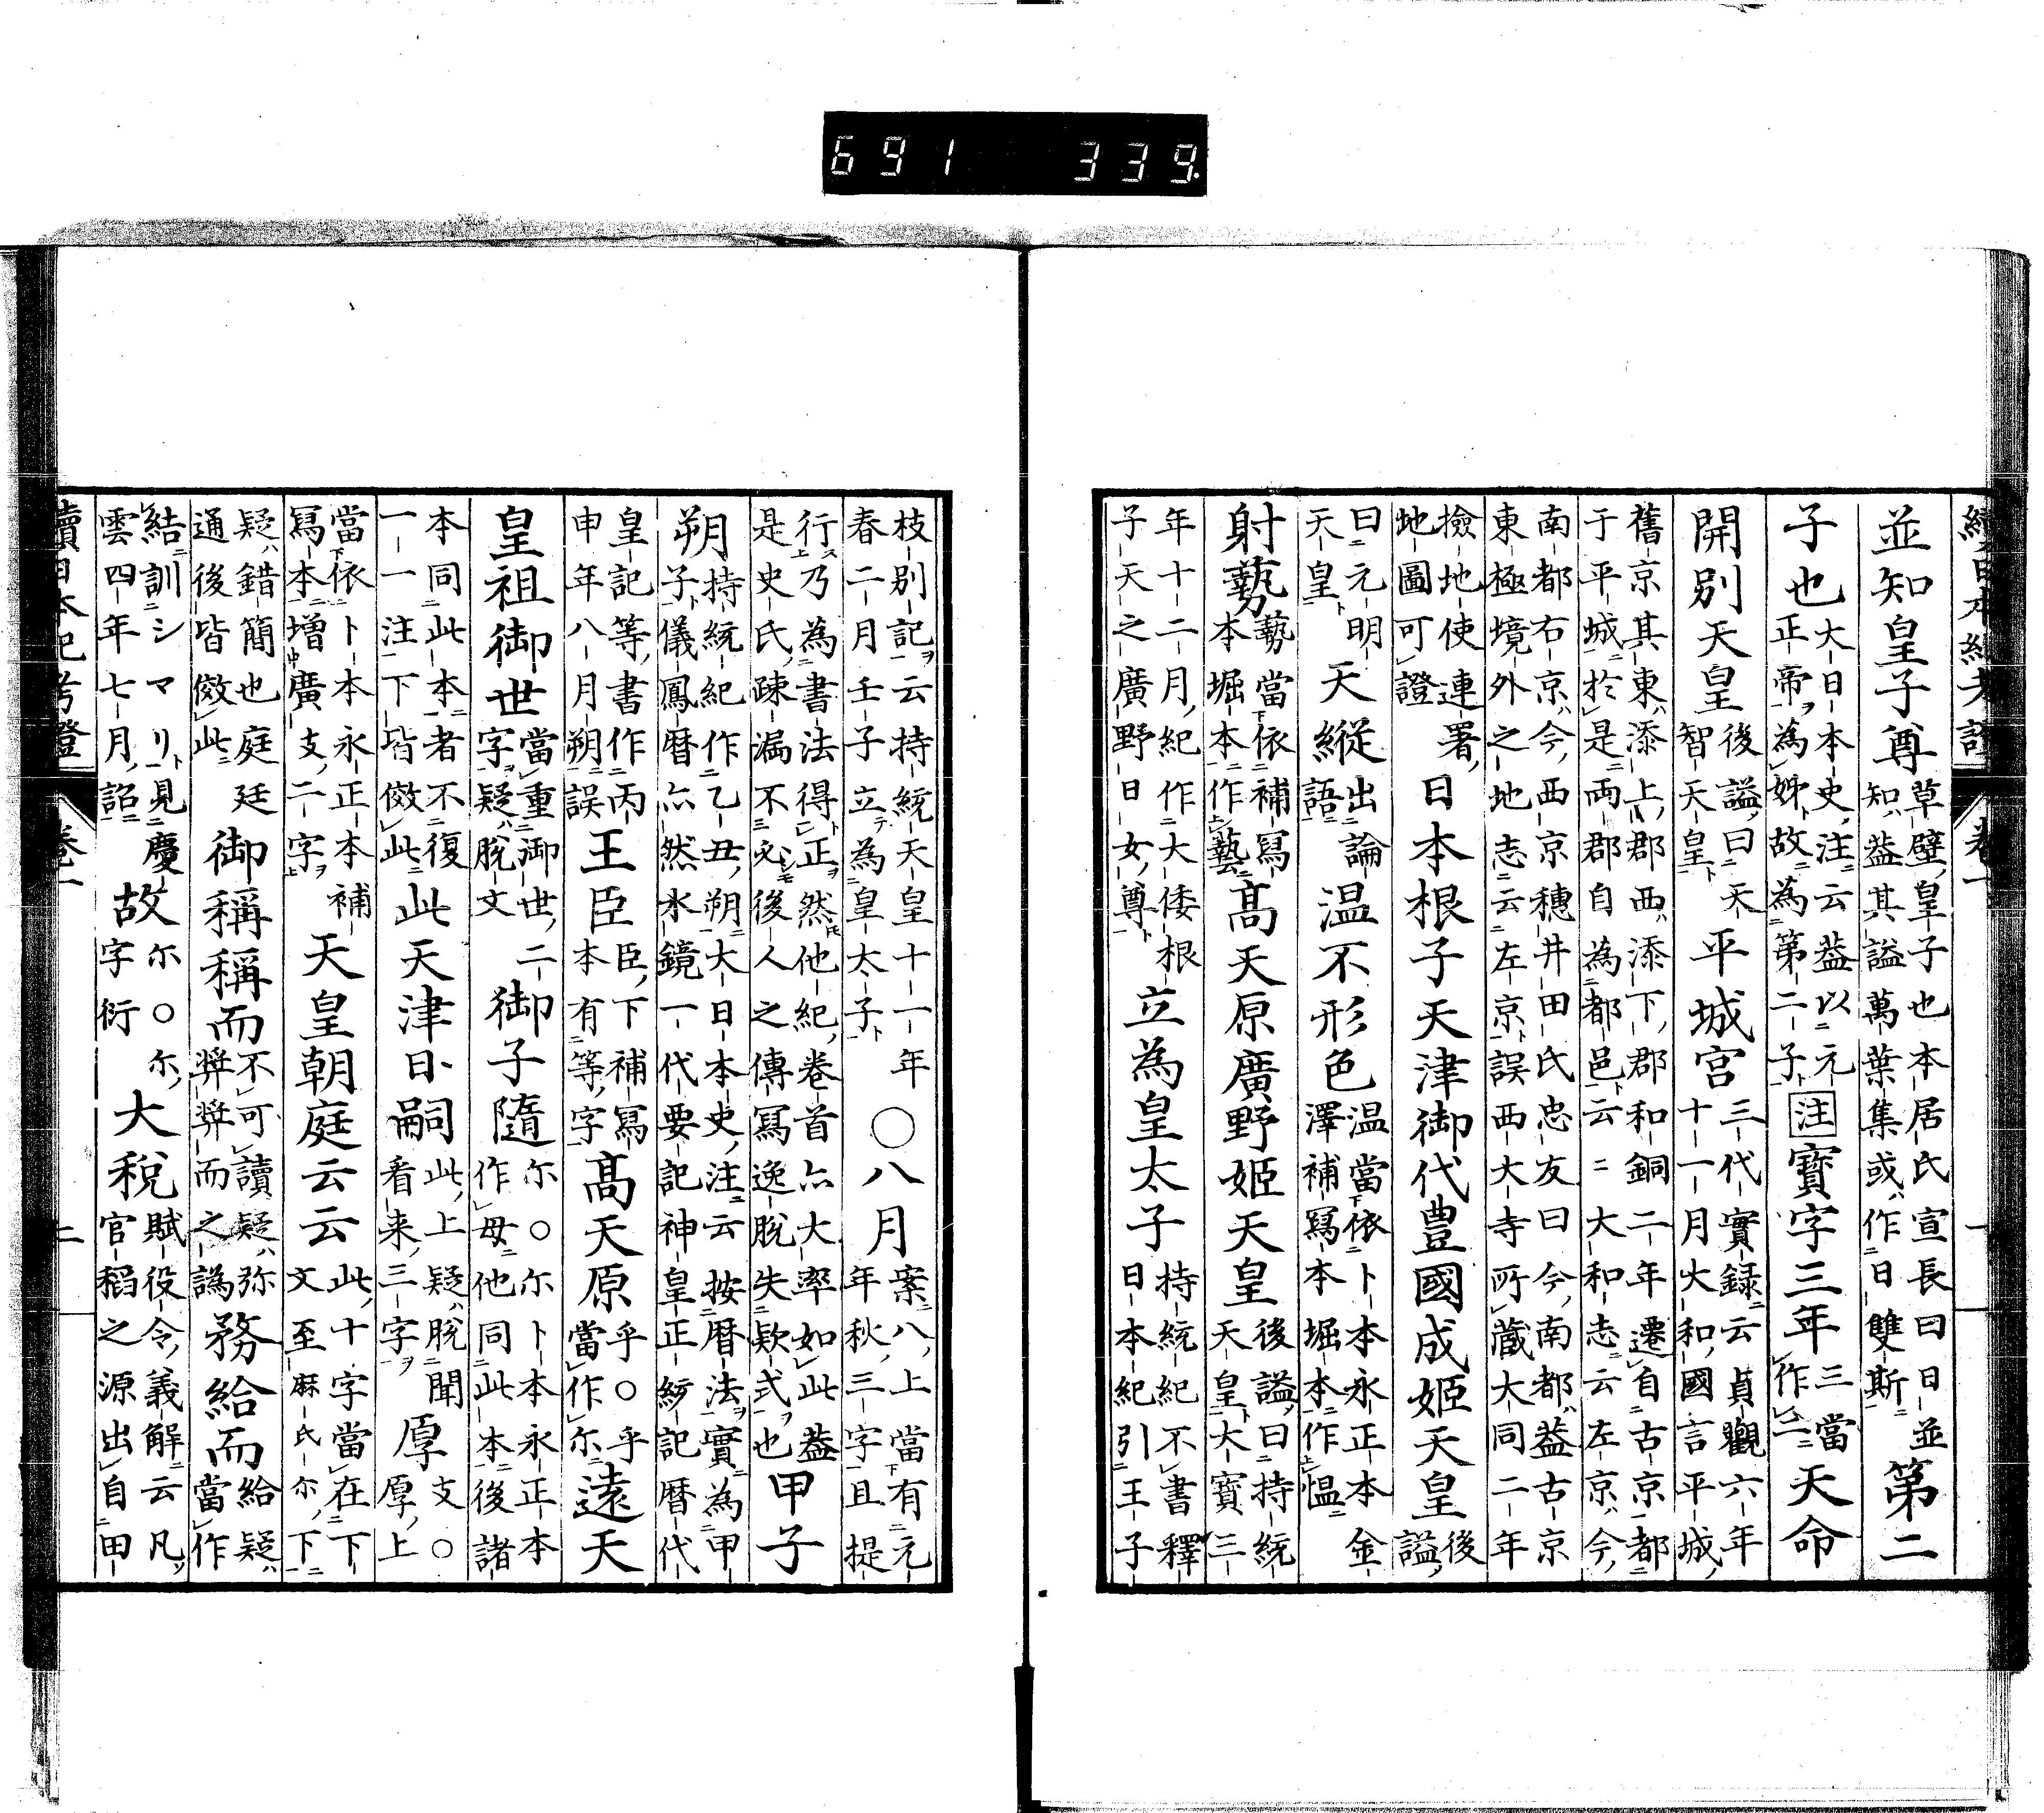 691 339
續日本紀考證 卷一
並知皇子尊草壁皇子也本居氏宣長曰日並
知蓋其謚萬葉集或ハ作日雙斯 第二
子也大日本史注云蓋以元
正帝ヲ為姊故為第二子ト 注 寶字三年三當
作二 天命
開別天皇後謚曰天
智天皇ト 平城宮三代實録云貞觀六年
十一月大和國言平城
舊京其東ハ添上郡西ハ添下郡和銅二年遷自古京都
于平城於是両郡自為都邑云〻大和志云左京ハ今
南都右京ハ今西京穗井田氏忠友曰今南都ハ蓋古京
東極境外之地志云左京誤西大寺所藏大同二年
撿地使連署
地圖可證 日本根子天津御代豊國成姬天皇後
謚
曰元明
天皇ト 天縱出論
語 温不形色温當依卜本永正本金
澤補寫本堀本作愠
射藝藝當依補寫
本堀本本作藝 高天原廣野姬天皇後謚曰持統
天皇ト大寶三
年十二月紀作大倭根
子天之廣野日女尊ト 立為皇太子持統紀不書釋
日本紀引王子
枝別記ヲ云持統天皇十一年
春二月壬子立テ為皇太子ト 〇八月案八上當有元
年秋三字且提
行ス乃為書法得正然𪜈他紀卷首亦大率如此蓋
是史氏疎漏不必シモ後人之傳寫逸脫失欵式ヲ也 甲子
朔持統紀作乙丑朔大日本史注云按暦法ヲ實為甲
子ト儀鳳暦亦然水鏡一代要記神皇正統記暦代
皇記等書作丙
申年八月朔誤 王臣臣下補寫
本有等字 高天原乎〇乎
當作尓 遠天
皇祖御世當重御世二
字ヲ疑ハ脫文 御子隨尓〇尓卜本永正本
作母他同此本後諸
本同此本者不復
一一注下皆倣此 此天津日嗣此上疑ハ脫聞
看来三字ヲ 厚支〇
厚上
當依卜本永正本補
寫本增廣支二字ヲ 天皇朝庭云云此十字當在下
文至麻氏尓下
疑ハ錯簡也庭廷
通後皆倣此 御稱稱而不可讀疑ハ弥
弉弉而之譌 務給而給疑ハ
當作
結訓シマリト見慶
雲四年七月詔 故尓〇尓
字衍 大稅賦役令義解云凡ソ
官稻之源出自田
續日本紀考證 卷一 二